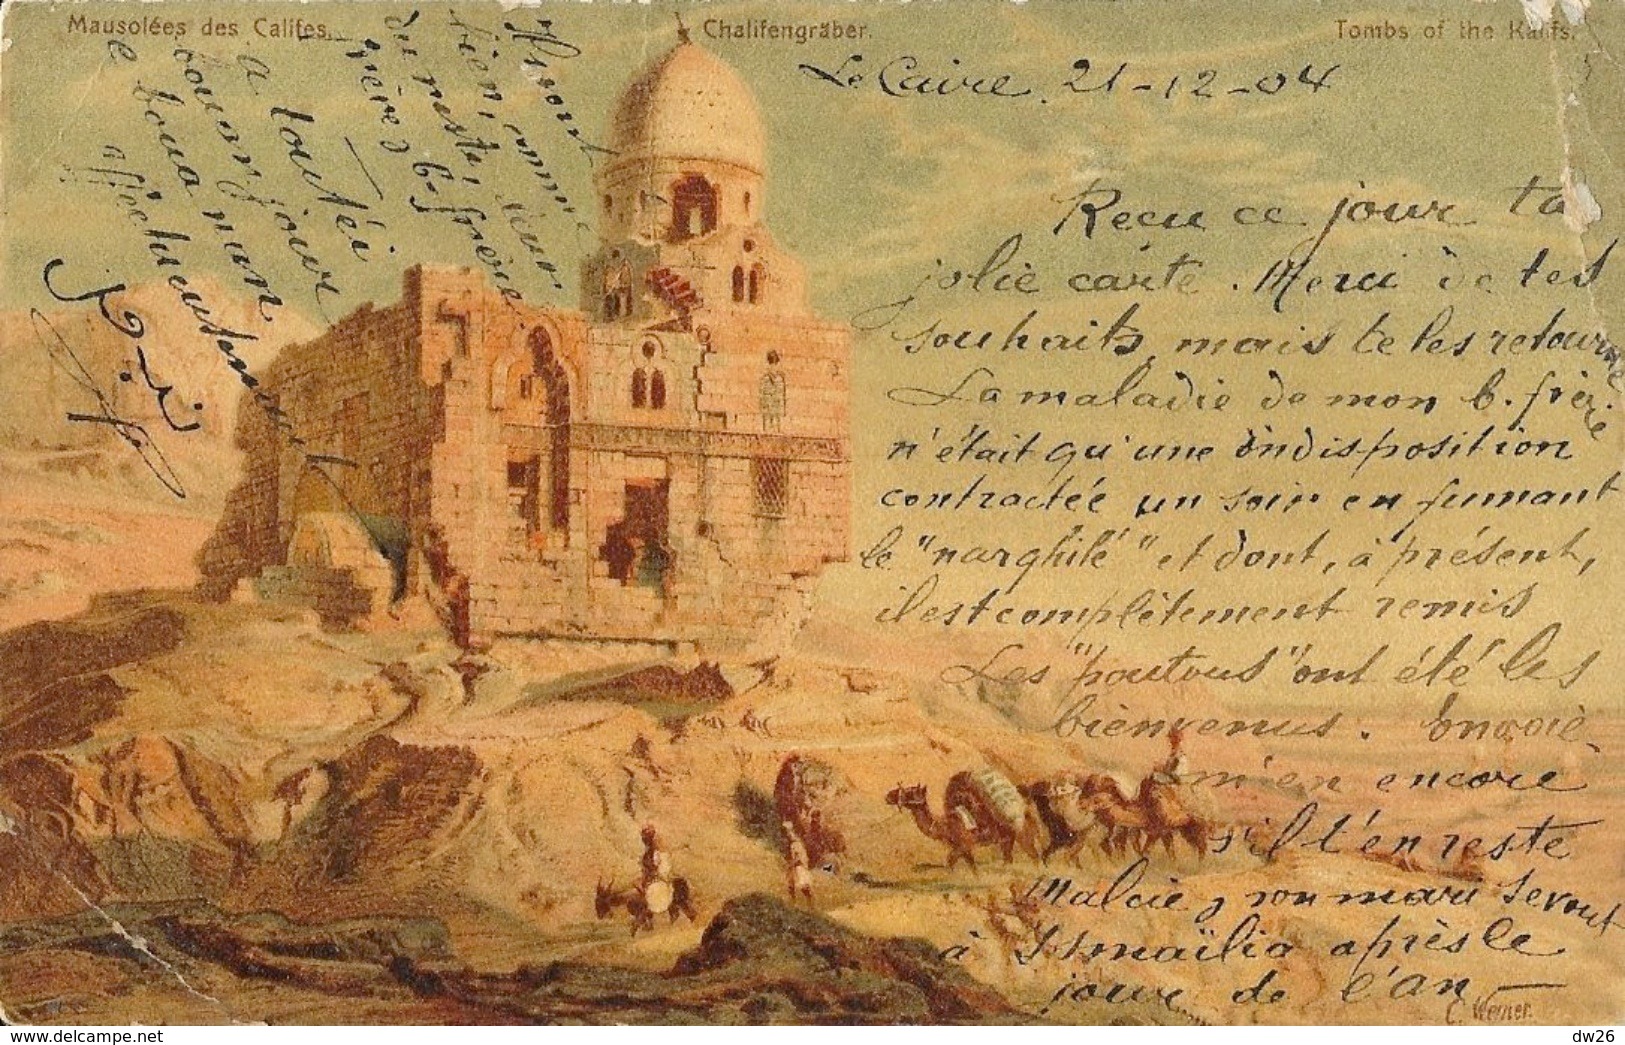 Mausolées des Califes.
Chalifengräber.
Tombs of the Kalifs.
Le Caire, 21-12-04
Reçu ce jour ta
jolie carte. Merci de tes
souhaits, mais te les retourne
La maladie de mon b. frère
n'était qu'une indisposition
contractée un soir en fumant
le "narghilé" et dont, à présent,
il est complètement remis
Les "poutous" ont été les
bienvenus. Envoie-
m'en encore
s'il t'en reste
son mari seront
à Ismaïlia après le
jour de l'an
Iront
bien, comme
du reste, leur
frère, b. frère
à toute
bonne jour
affectueusement
C. Werner.
dw26